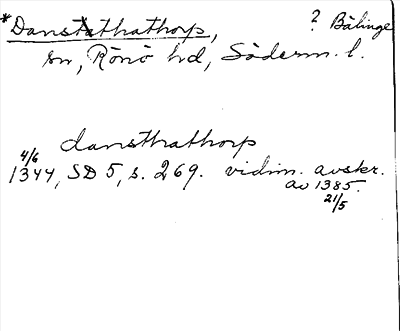 *Danstathathorp, ? Bälinge
sn, Rönö hd, Söderm. l.
dansthathorp
4/6
1344, SD 5, s. 269. vidim. avskr.
av 1385.
21/5